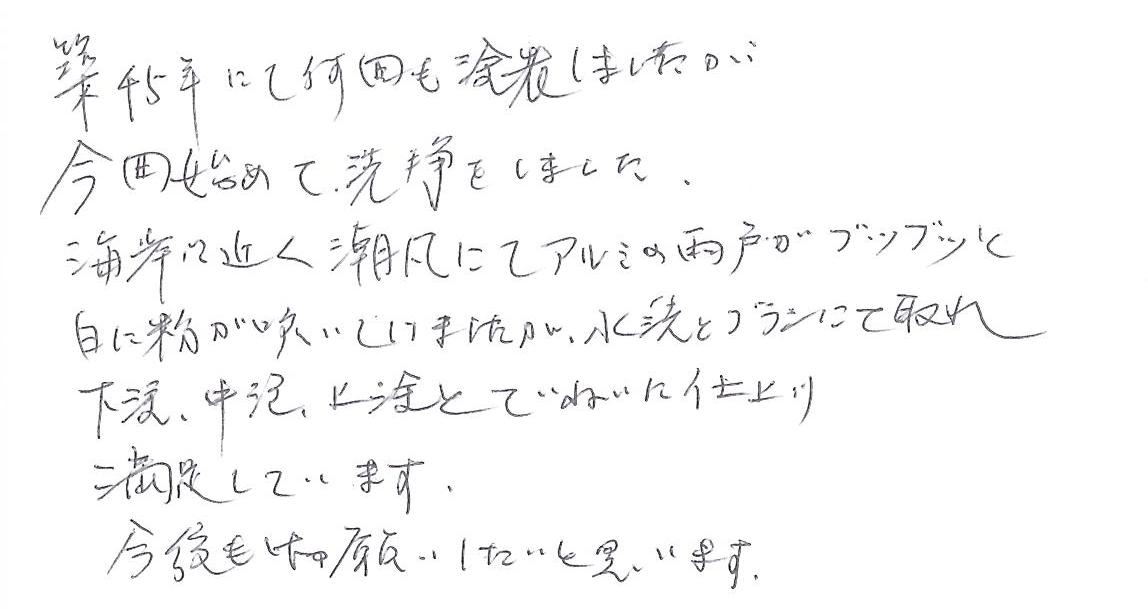 築45年にて何回も塗装しましたが
今回始めて洗浄をしました.
海岸に近く潮風にてアルミの雨戸がブツブツと
白に粉が吹いていましたが、水洗とブラシにて取れ
下塗、中塗、上塗とていねいに仕上り
満足しています.
今後も お願いしたいと思います.